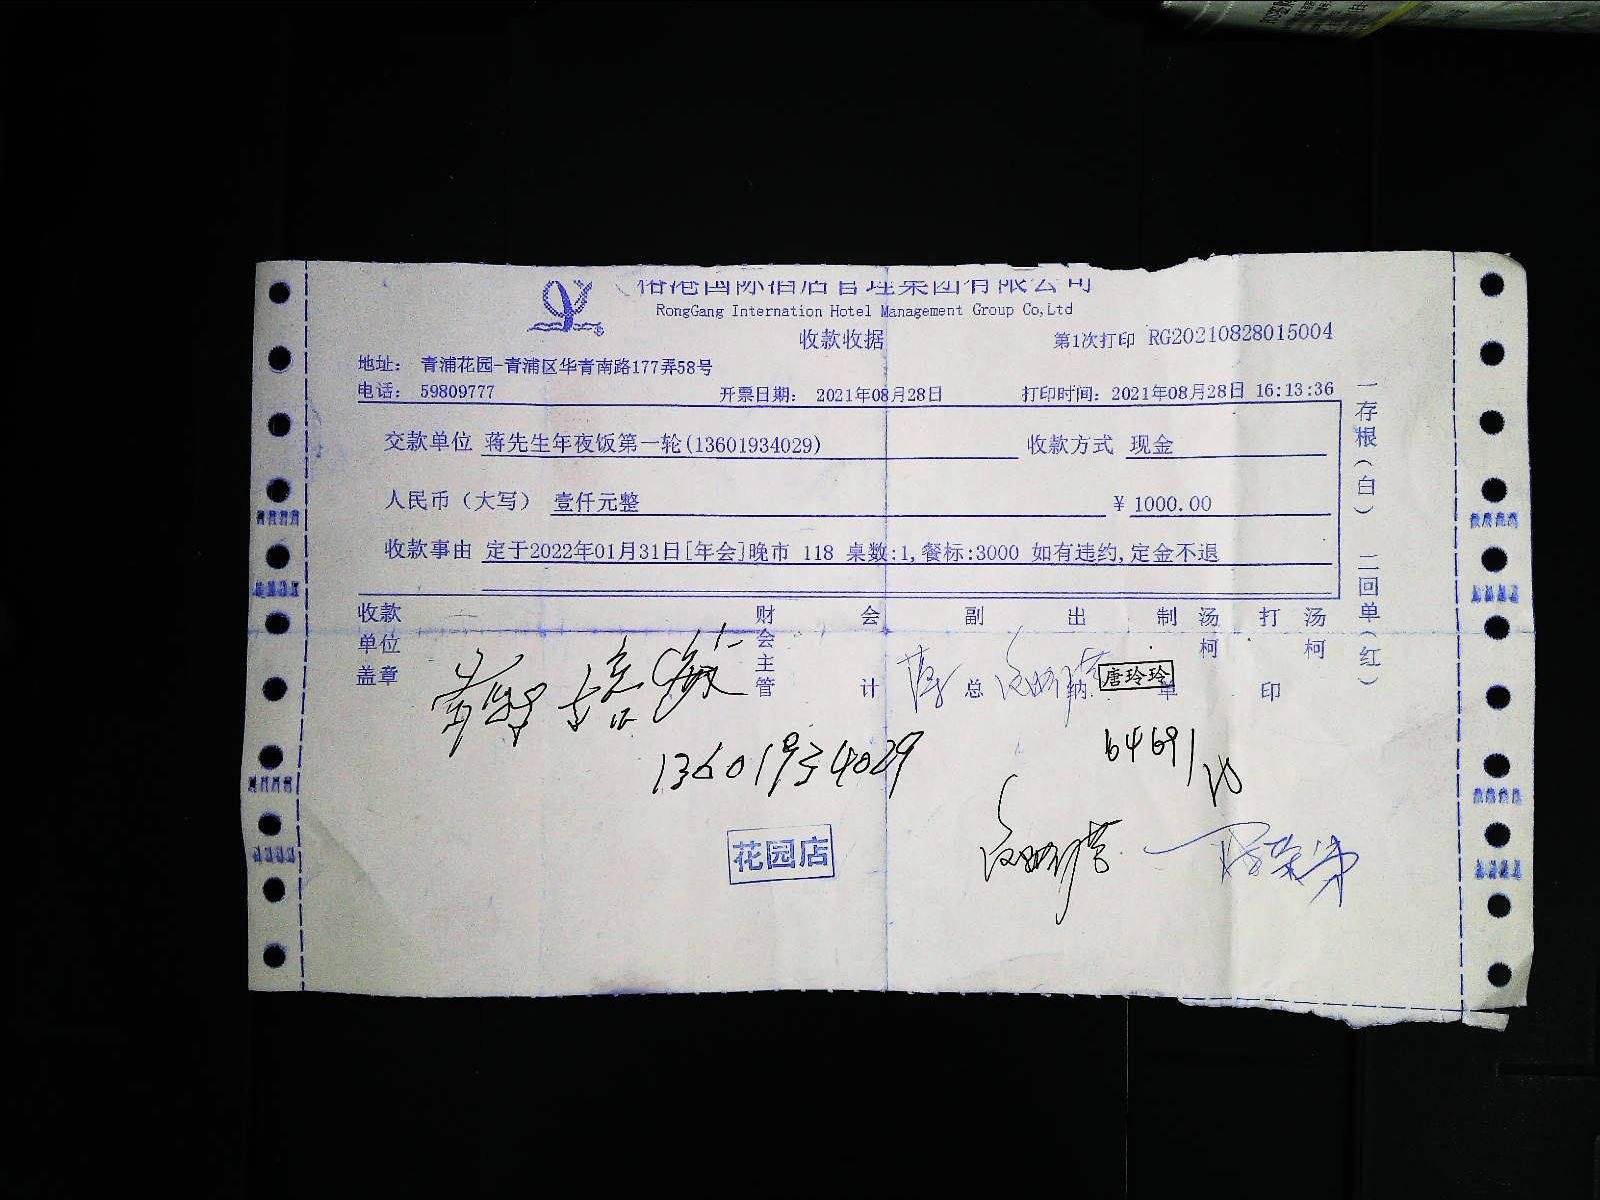 港国际酒店管理集团有限公司
RongGang Internation Hotel Management Group Co,Ltd
收款收据
第1次打印 RG20210828015004
地址： 青浦花园-青浦区华青南路177弄58号
电话： 59809777 开票日期： 2021年08月28日 打印时间：2021年08月28日 16:13:36
交款单位 蒋先生年夜饭第一轮(13601934029) 收款方式 现金
人民币（大写） 壹仟元整 ¥ 1000.00
收款事由 定于2022年01月31日[年会]晚市 118 桌数:1,餐标:3000 如有违约,定金不退
收款单位盖章 财会主管 会计 副总 出纳 唐玲玲 制单 汤柯 打印 汤柯
一存根（白） 二回单（红）
13601934029
64691
花园店